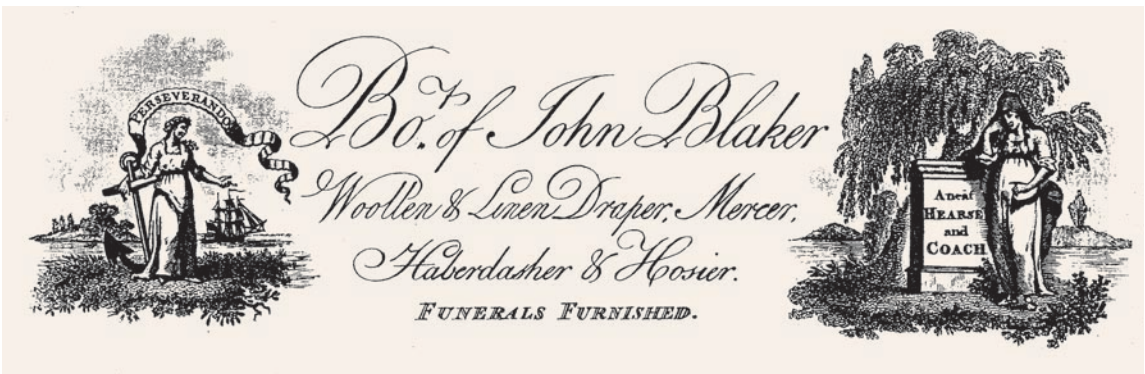 PERSEVERANDO
Bo.t of John Blaker
Woollen & Linen Draper, Mercer,
Haberdasher & Hosier.
FUNERALS FURNISHED.
A neat
HEARSE
and
COACH